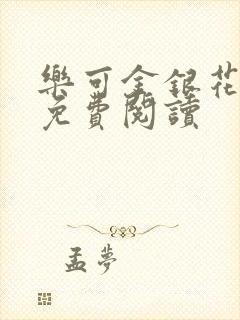 樂可金銀花
免費閱讀
孟夢